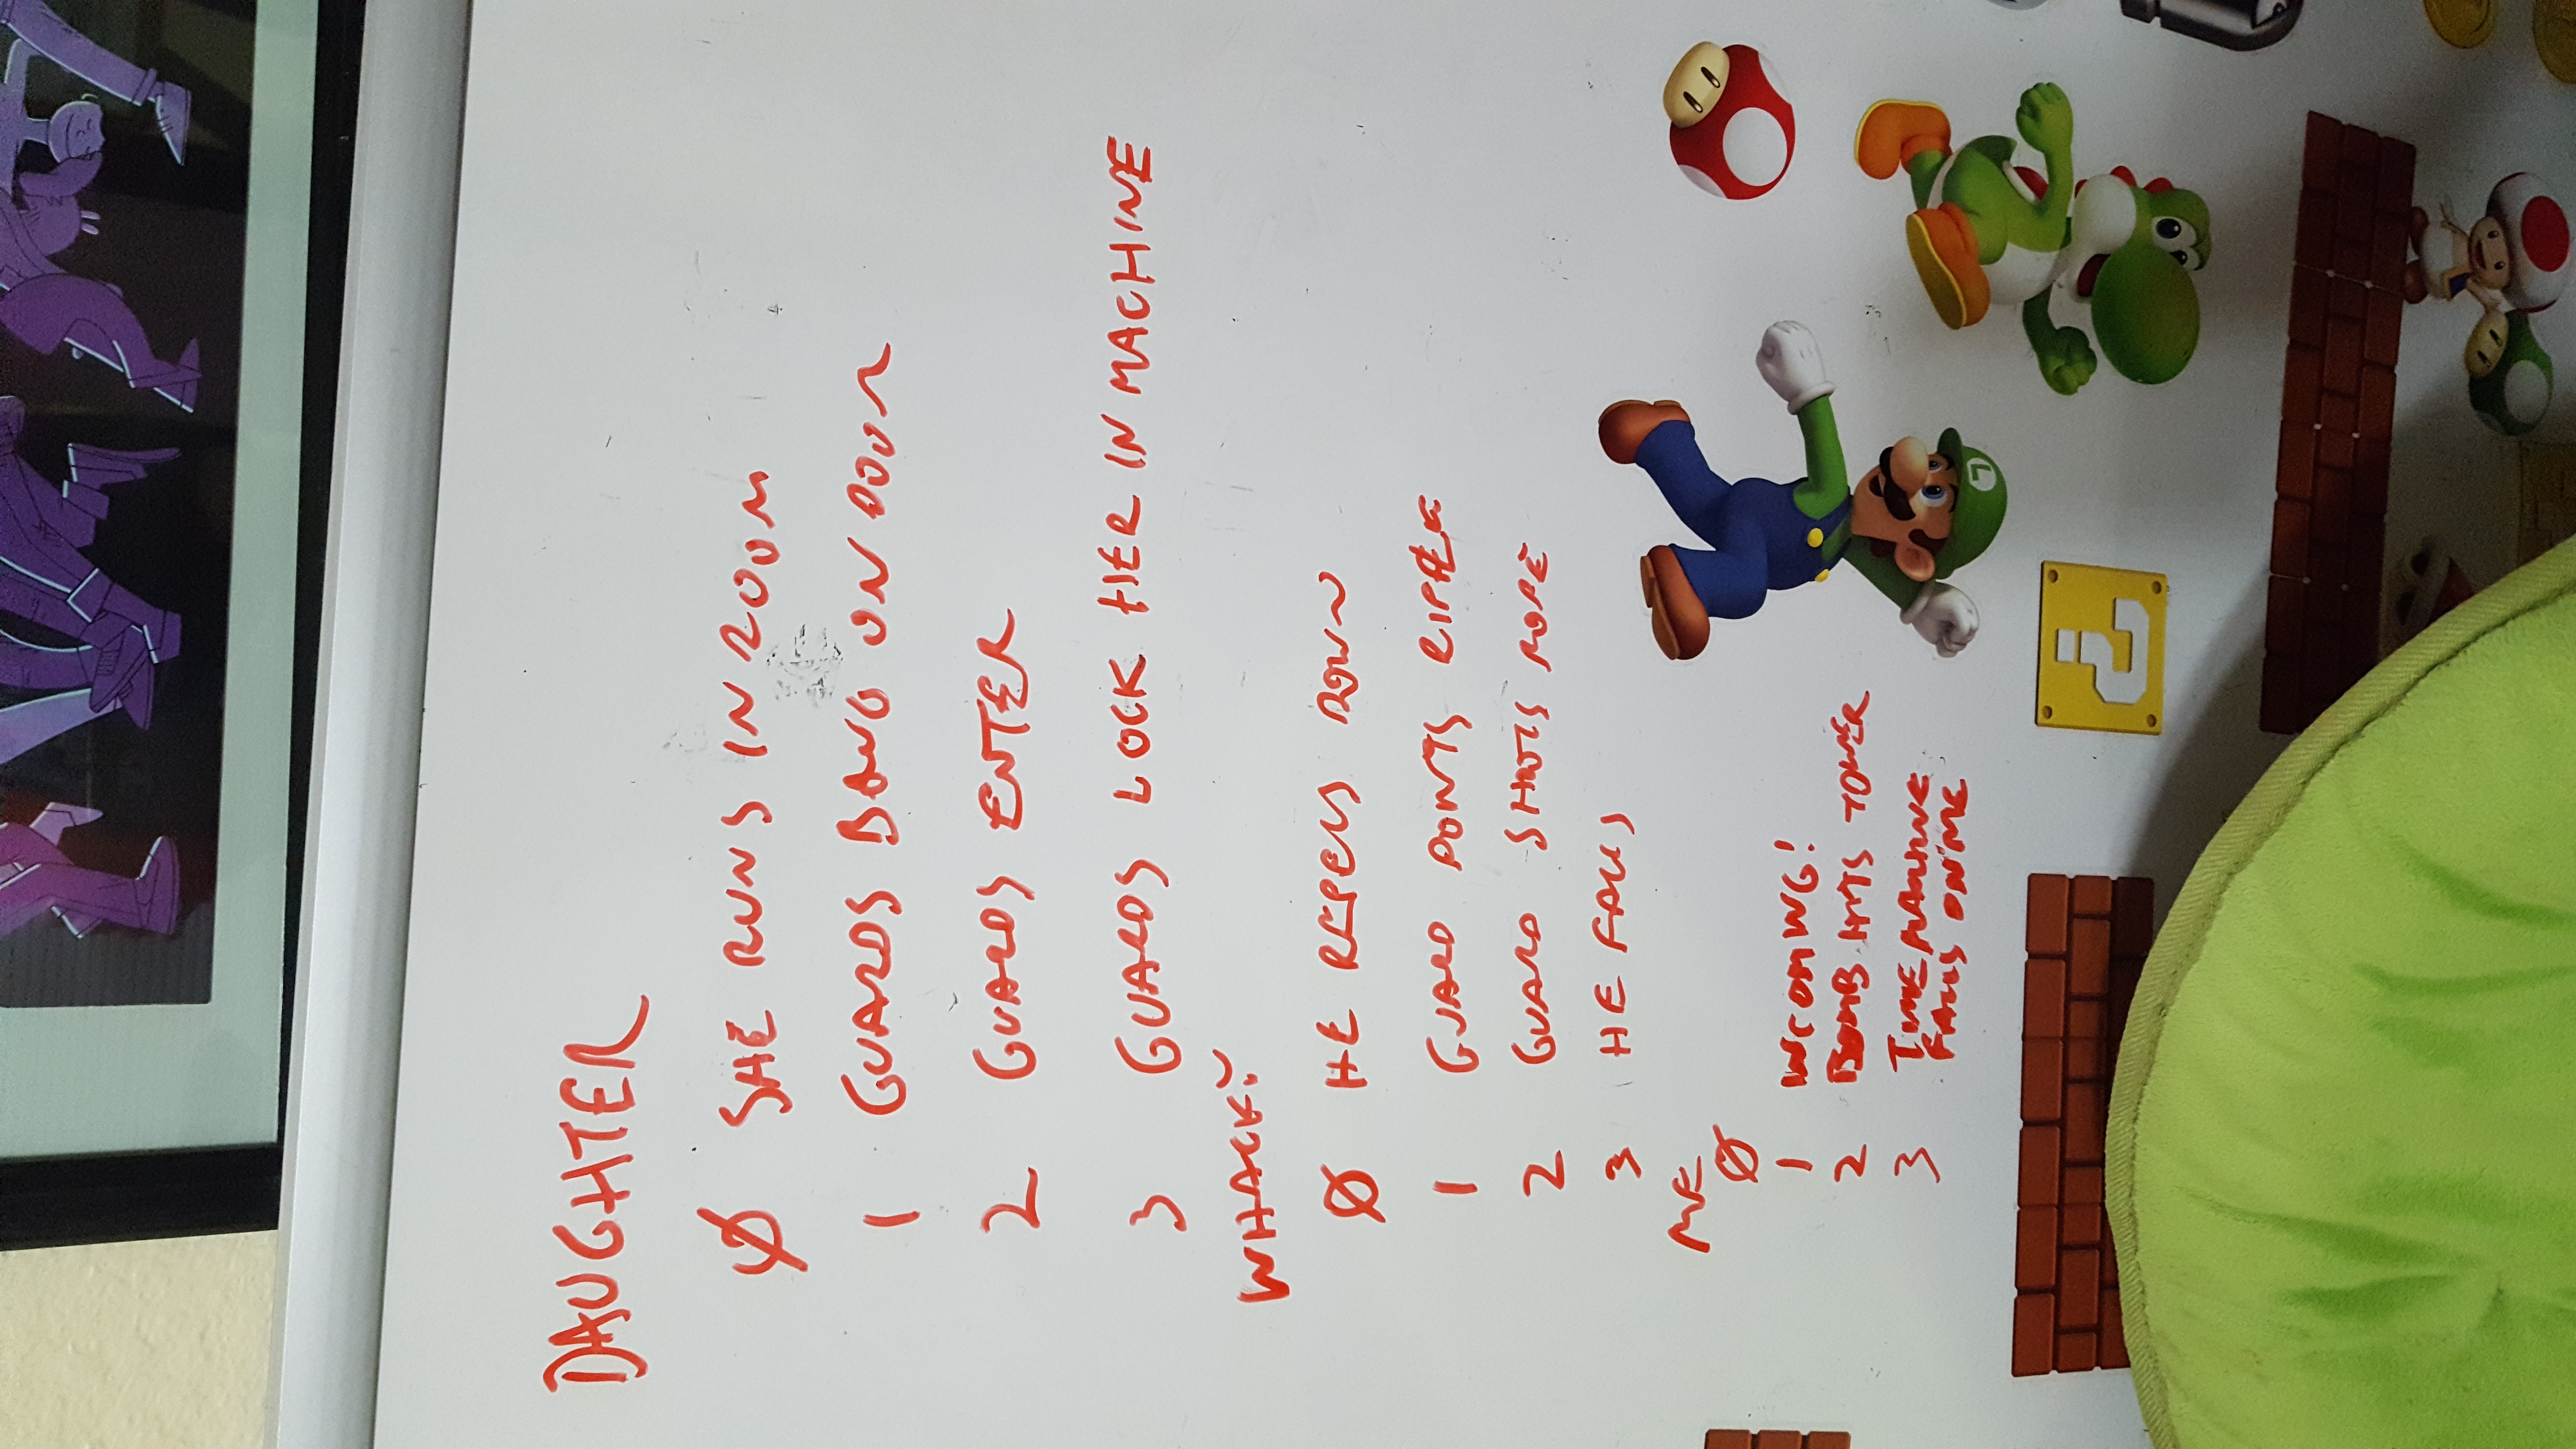 DAUGHTER
Ø SHE RUNS IN ROOM
1 GUARDS BANG ON DOOR
2 GUARDS ENTER
3 GUARDS LOCK HER IN MACHINE
WHACK
Ø HE REPELS DOWN
1 GUARD POINTS RIFFLE
2 GUARD SHOOTS ROPE
3 HE FALLS
ME
Ø
1 INCOMING!
2 BOMB HITS TOWER
3 TIME MACHINE
FALLS ON ME
L
?